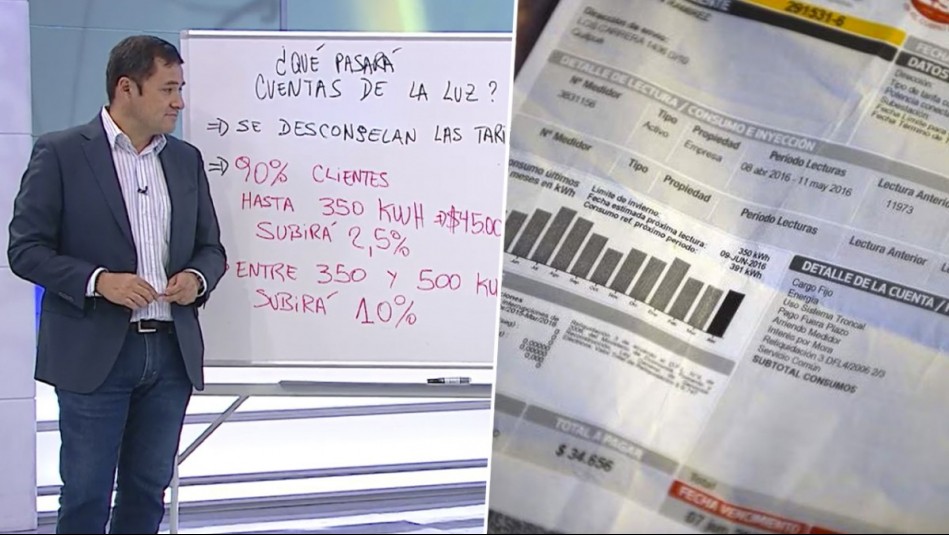 ¿QUÉ PASARÁ
CUENTAS DE LA LUZ?
⇒ SE DESCONGELAN LAS TARI
⇒ 90% CLIENTES
HASTA 350 KWH → $45.00
SUBIRÁ 2,5%
ENTRE 350 Y 500 KW
SUBIRÁ 10%
291531-6
Dirección de servicio:
Quilpué
DATOS
Dirección:
DETALLE DE LECTURA / CONSUMO E INYECCIÓN
Nº Medidor
Tipo
Propiedad
Período Lecturas
Lectura Anterior
3831156
Activo
Empresa
08 abr 2016 - 11 may 2016
11973
Nº Medidor
Tipo
Propiedad
Período Lecturas
Lectura Anterior
onsumo últimos
meses en kWh
Límite de invierno:
350 kWh
Fecha estimada próxima lectura:
09-JUN-2016
Consumo ref. próximo período:
391 kWh
DETALLE DE LA CUENTA /
Cargo Fijo
Energía
Uso Sistema Troncal
Pago Fuera Plazo
Arriendo Medidor
Interés por Mora
Reliquidación 3 DFL4/2006 2/3
Servicio Común
SUBTOTAL CONSUMOS
TOTAL A PAGAR
$ 34.656
Total
FECHA VENCIMIENTO